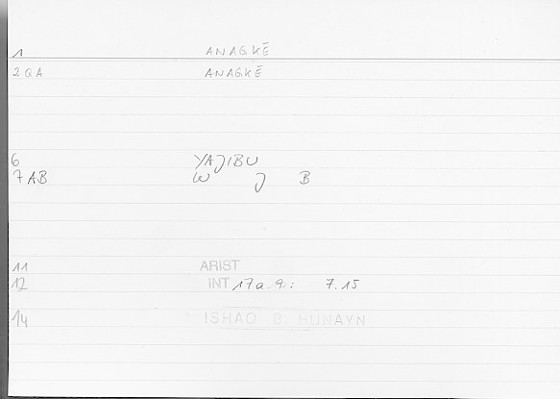 1 ANAGKĒ
2 QA ANAGKĒ
6 YAJIBU
7 AB W J B
11 ARIST
12 INT 17a.9: 7.15
14 ISHAQ B HUNAYN